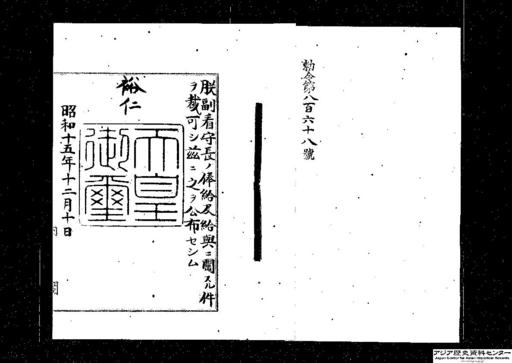 勅令第八百六十八號
朕副看守長ノ俸給及給與ニ關スル件
ヲ裁可シ茲ニ之ヲ公布セシム
裕仁
天皇
御璽
昭和十五年十二月十日
内
閣
アジア歴史資料センター
Japan Center for Asian Historical Records